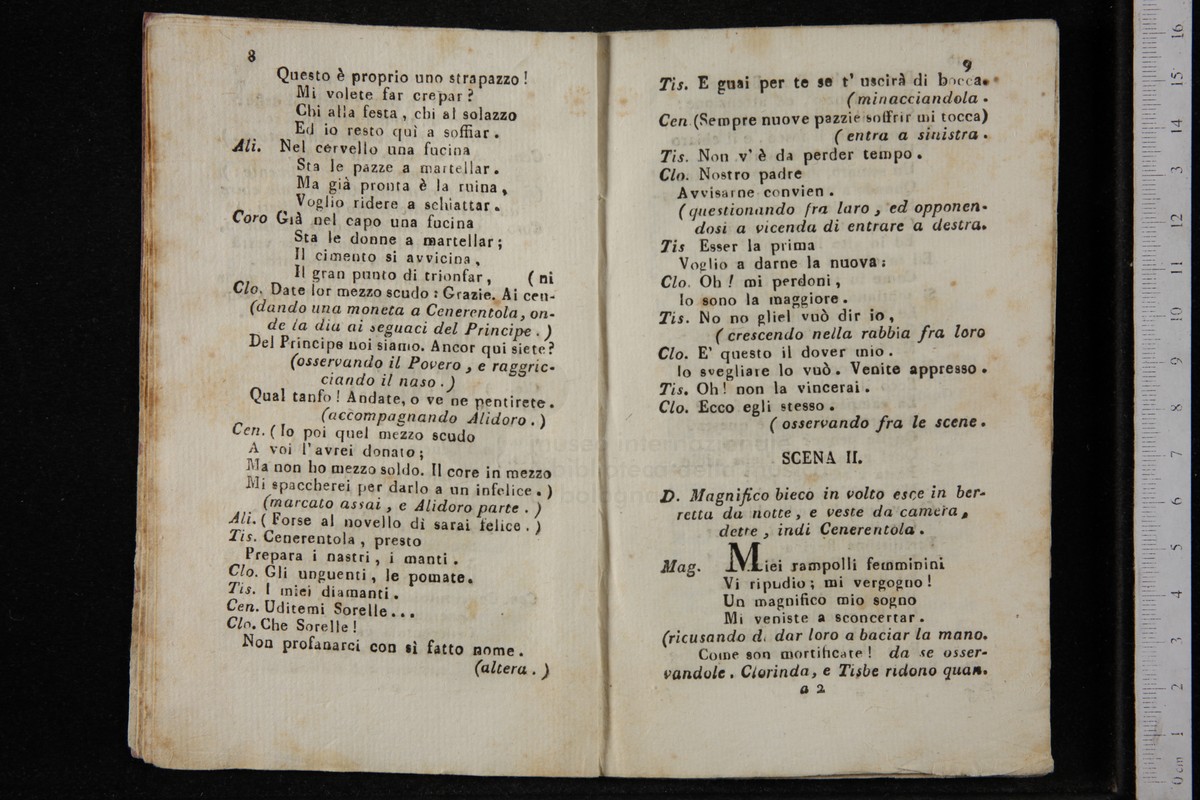 8
Questo è proprio uno strapazzo!
Mi volete far crepar?
Chi alla festa, chi al solazzo
Ed io resto quì a soffiar.
Ali. Nel cervello una fucina
Sta le pazze a martellar.
Ma già pronta è la ruina,
Voglio ridere a schiattar.
Coro Già nel capo una fucina
Sta le donne a martellar;
Il cimento si avvicina,
Il gran punto di trionfar, (ni
Clo. Date lor mezzo scudo: Grazie. Ai cen-
(dando una moneta a Cenerentola, on-
de la dia ai seguaci del Principe.)
Del Principe noi siamo. Ancor qui siete?
(osservando il Povero, e raggric-
ciando il naso.)
Qual tanfo! Andate, o ve ne pentirete.
(accompagnando Alidoro.)
Cen. (Io poi quel mezzo scudo
A voi l'avrei donato;
Ma non ho mezzo soldo. Il core in mezzo
Mi spaccherei per darlo a un infelice.)
(marcato assai, e Alidoro parte.)
Ali. (Forse al novello dì sarai felice.)
Tis. Cenerentola, presto
Prepara i nastri, i manti.
Clo. Gli unguenti, le pomate.
Tis. I miei diamanti.
Cen. Uditemi Sorelle...
Clo. Che Sorelle!
Non profanarci con sì fatto nome.
(altera.)
9
Tis. E guai per te se t' uscirà di bocca.
(minacciandola.
Cen (Sempre nuove pazzie soffrir mi tocca)
(entra a sinistra.
Tis. Non v' è da perder tempo.
Clo. Nostro padre
Avvisarne convien.
(questionando fra laro, ed opponen-
dosi a vicenda di entrare a destra.
Tis Esser la prima
Voglio a darne la nuova:
Clo. Oh! mi perdoni,
Io sono la maggiore.
Tis. No no gliel vuò dir io,
(crescendo nella rabbia fra loro
Clo. E' questo il dover mio.
Io svegliare lo vuò. Venite appresso.
Tis. Oh! non la vincerai.
Clo. Ecco egli stesso.
(osservando fra le scene.
SCENA II.
D. Magnifico bieco in volto esce in ber-
retta da notte, e veste da camera,
dette, indi Cenerentola.
Mag. Miei rampolli femminini
Vi ripudio; mi vergogno!
Un magnifico mio sogno
Mi veniste a sconcertar.
(ricusando di dar loro a baciar la mano.
Come son mortificate! da se osser-
vandole. Clorinda, e Tisbe ridono quan.
a 2
museo internazionale
biblioteca della musica
bologna
0 cm 1 2 3 4 5 6 7 8 9 10 11 12 13 14 15 16